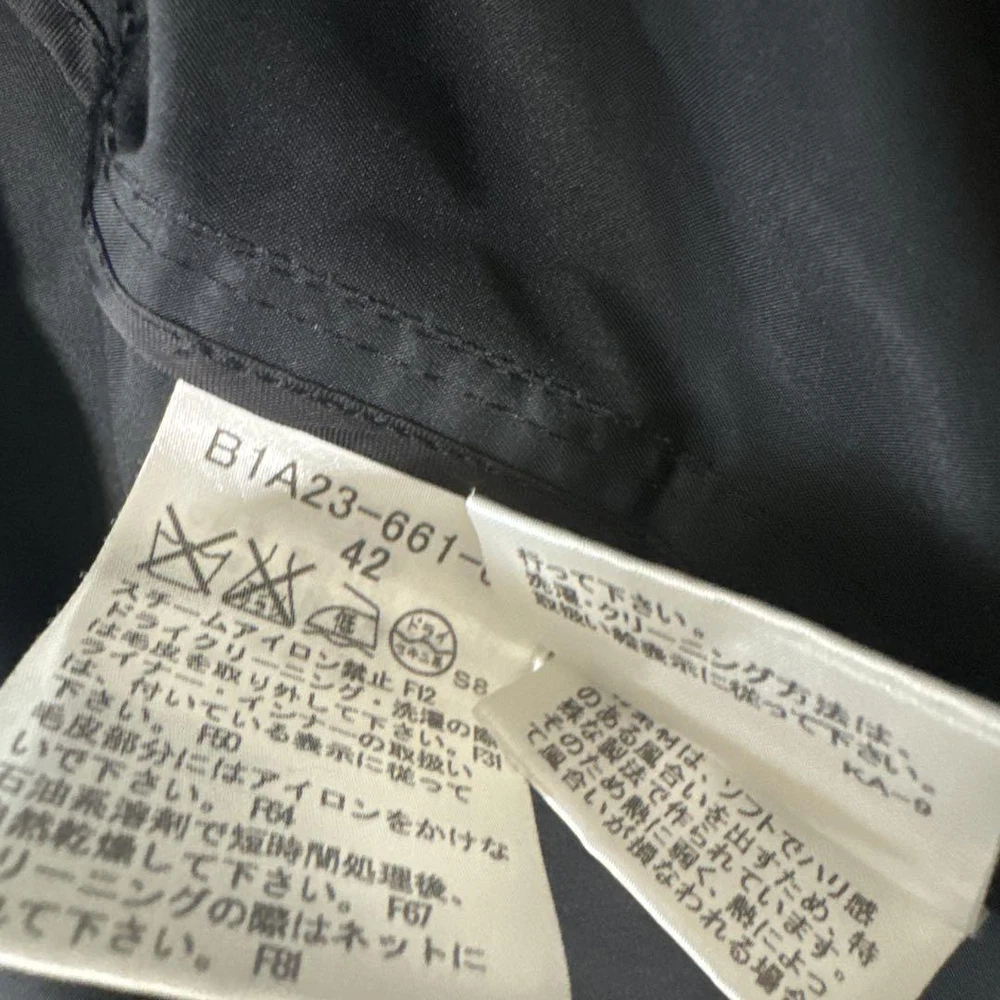 B1A23-661-
42
低 ドライ セキユ系
S8
スチームアイロン禁止 F12
ドライクリーニング・洗濯の際
は毛皮を取り外して下さい。 F31
ライナー・インナーの取扱い
は、付いている表示に従って
下さい。 F50
毛皮部分にはアイロンをかけな
いで下さい。 F64
石油系溶剤で短時間処理後、
然乾燥して下さい。 F67
リーニングの際はネットに
れて下さい。 F81
行って下さい。
洗濯・クリーニング方法は、
取扱い絵表示に従って下さい。
KA-9
この素材は、ソフトでハリ感
のある風合いを出すため、特
殊な製法で作られています。
そのため熱に弱く、熱によっ
て風合いが損なわれる場合